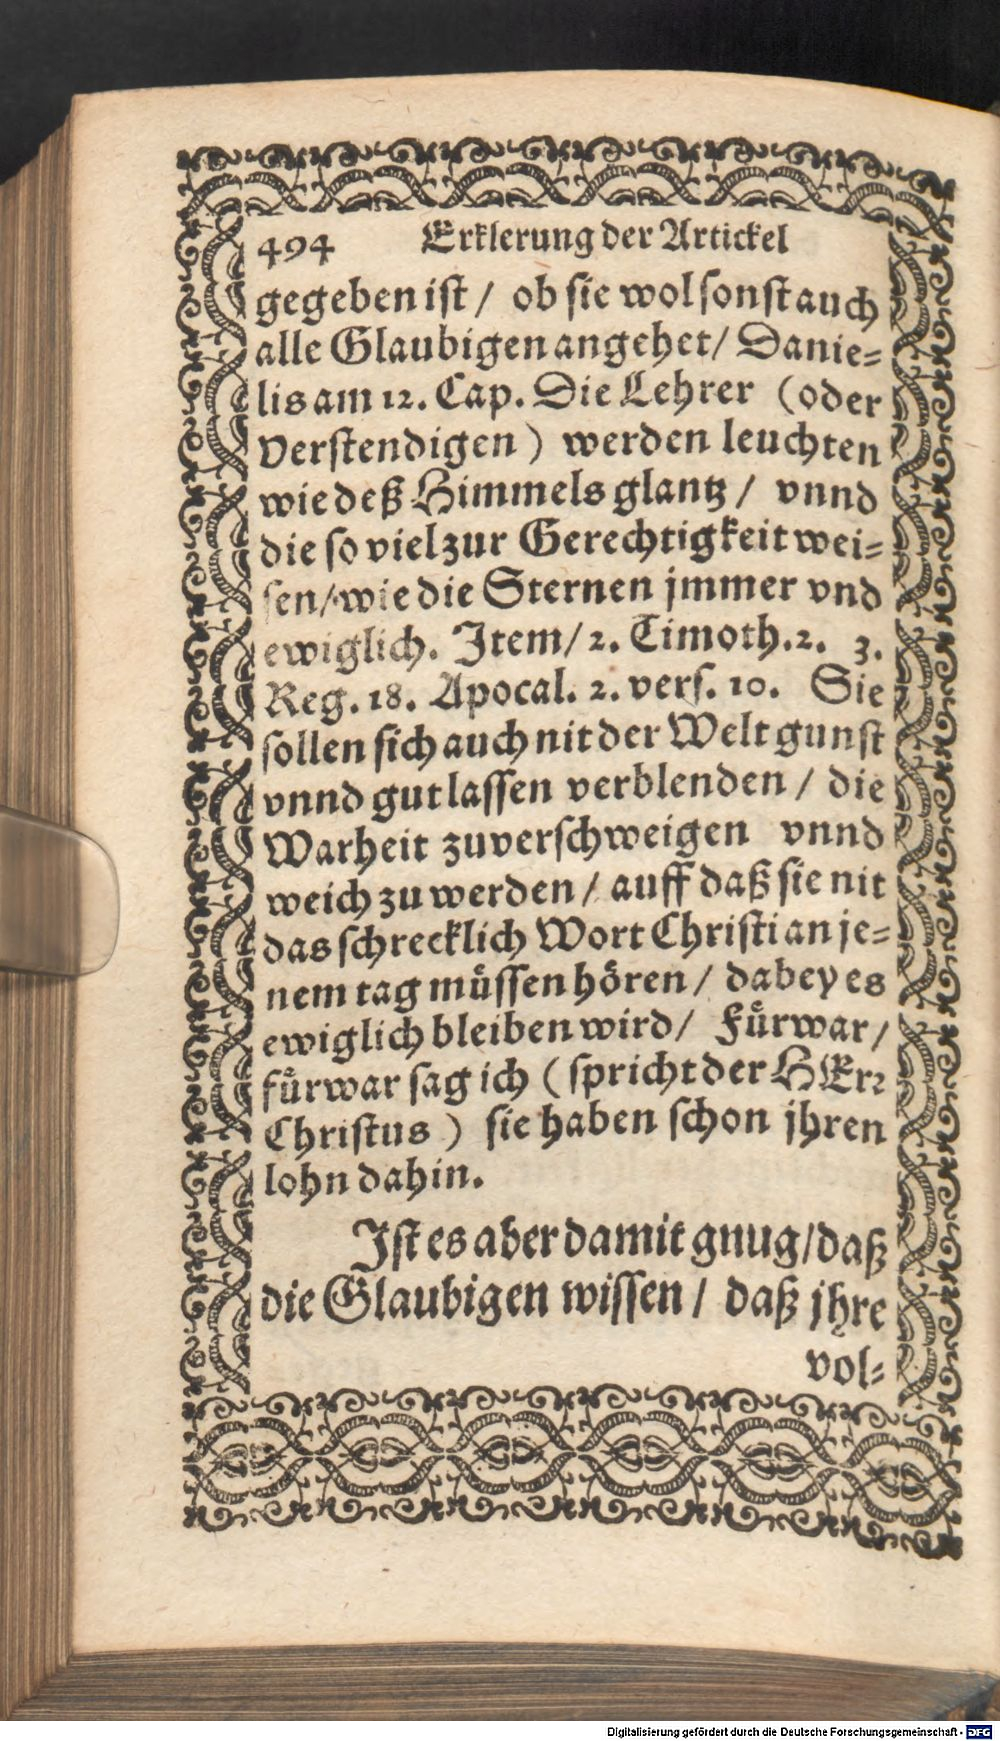 494 Erklerung der Artickel
gegeben ist / ob sie wol sonst auch
alle Glaubigen angehet / Danie⸗
lis am 12. Cap. Die Lehrer (oder
verstendigen) werden leuchten
wie deß Himmels glantz / vnnd
die so viel zur Gerechtigkeit wei⸗
sen / wie die Sternen jmmer vnd
ewiglich. Item / 2. Timoth. 2. 3.
Reg. 18. Apocal. 2. vers. 10. Sie
sollen sich auch nit der Welt gunst
vnnd gut lassen verblenden / die
Warheit zuverschweigen vnnd
weich zu werden / auff daß sie nit
das schrecklich Wort Christi an je⸗
nem tag müssen hören / dabey es
ewiglich bleiben wird / Fürwar /
fürwar sag ich (spricht der HErr
Christus) sie haben schon jhren
lohn dahin.
Ist es aber damit gnug / daß
die Glaubigen wissen / daß jhre
vol⸗
Digitalisierung gefördert durch die Deutsche Forschungsgemeinschaft - DFG